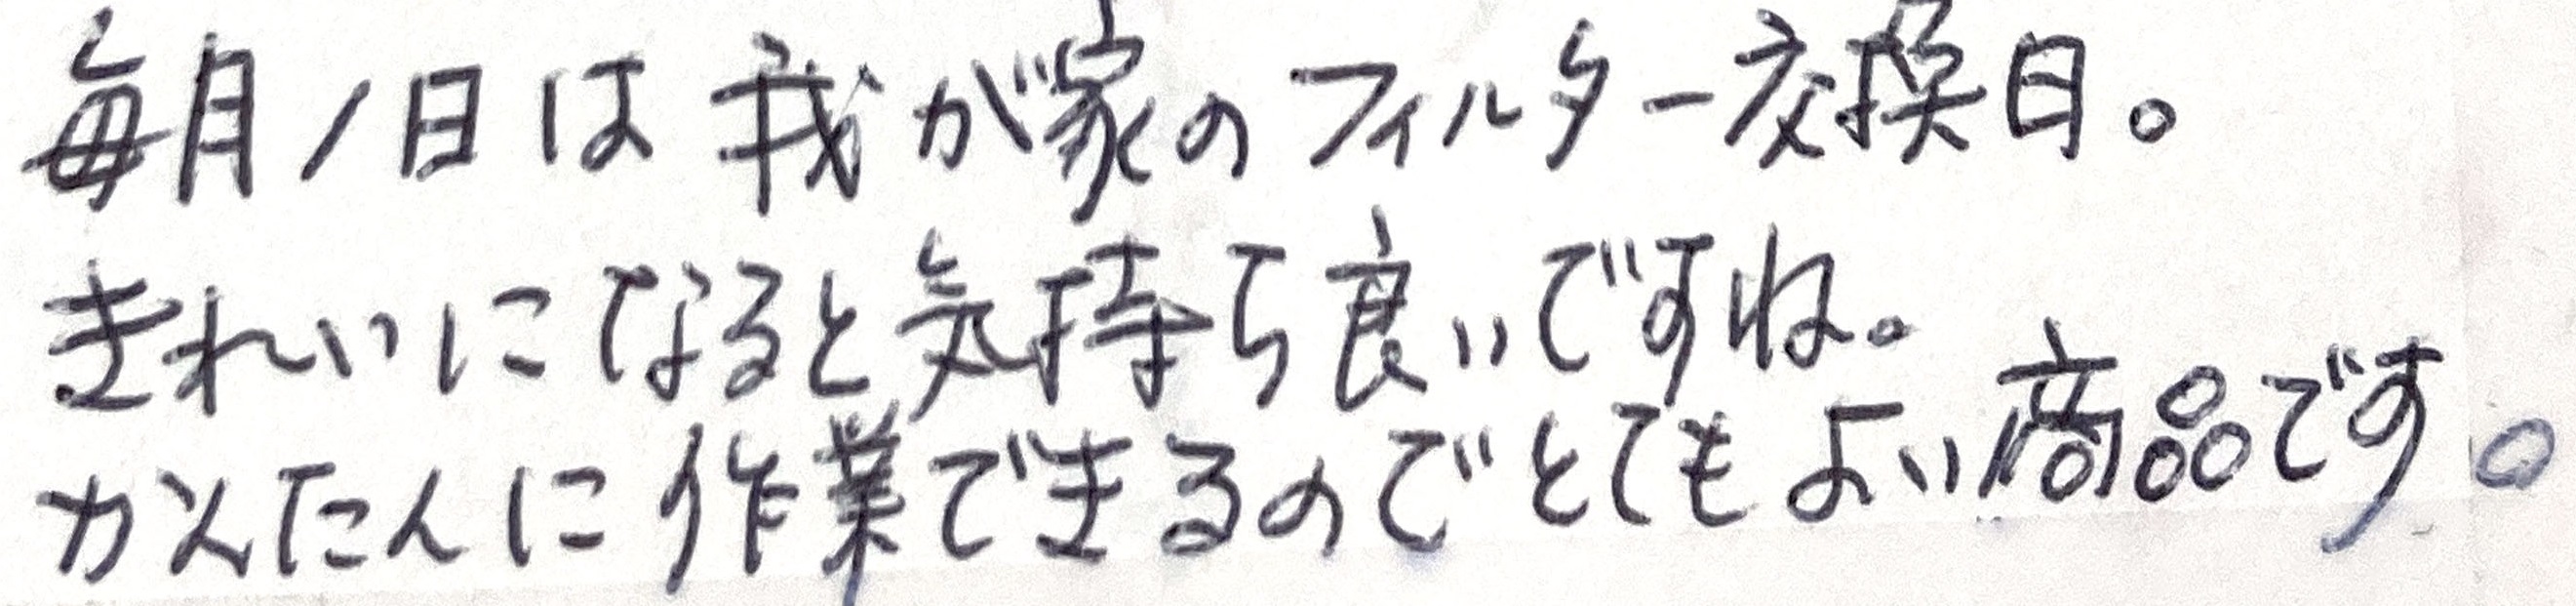 毎月1日は我が家のフィルター交換日。
きれいになると気持ち良いですね。
かんたんに作業できるのでとてもよい商品です。